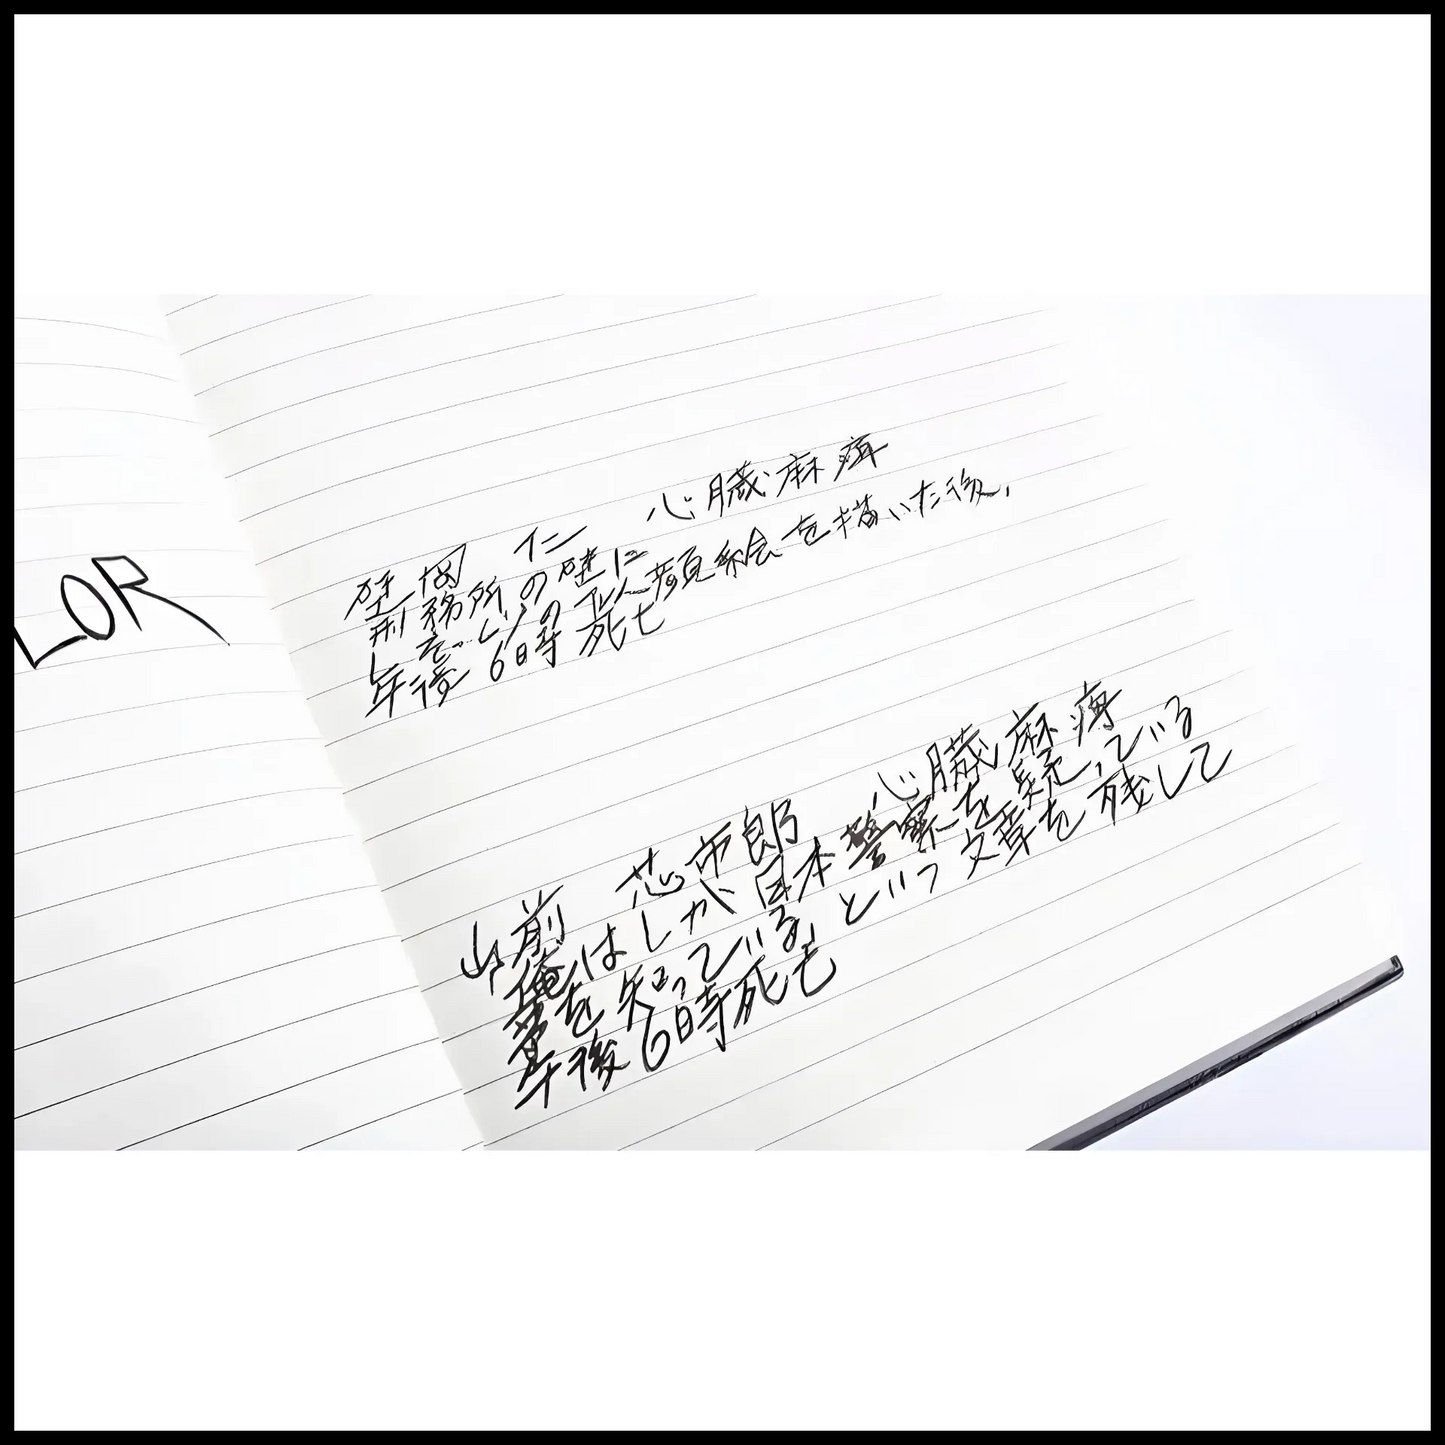 LOR
岡 仁 心臓麻痺
刑務所の壁に
Lそっくりの似顔絵を描いた後、
午後6時死亡
山前 芯市郎 心臓麻痺
俺はLが日本警察を疑っている
事を知っている、という文章を残して
午後6時死亡